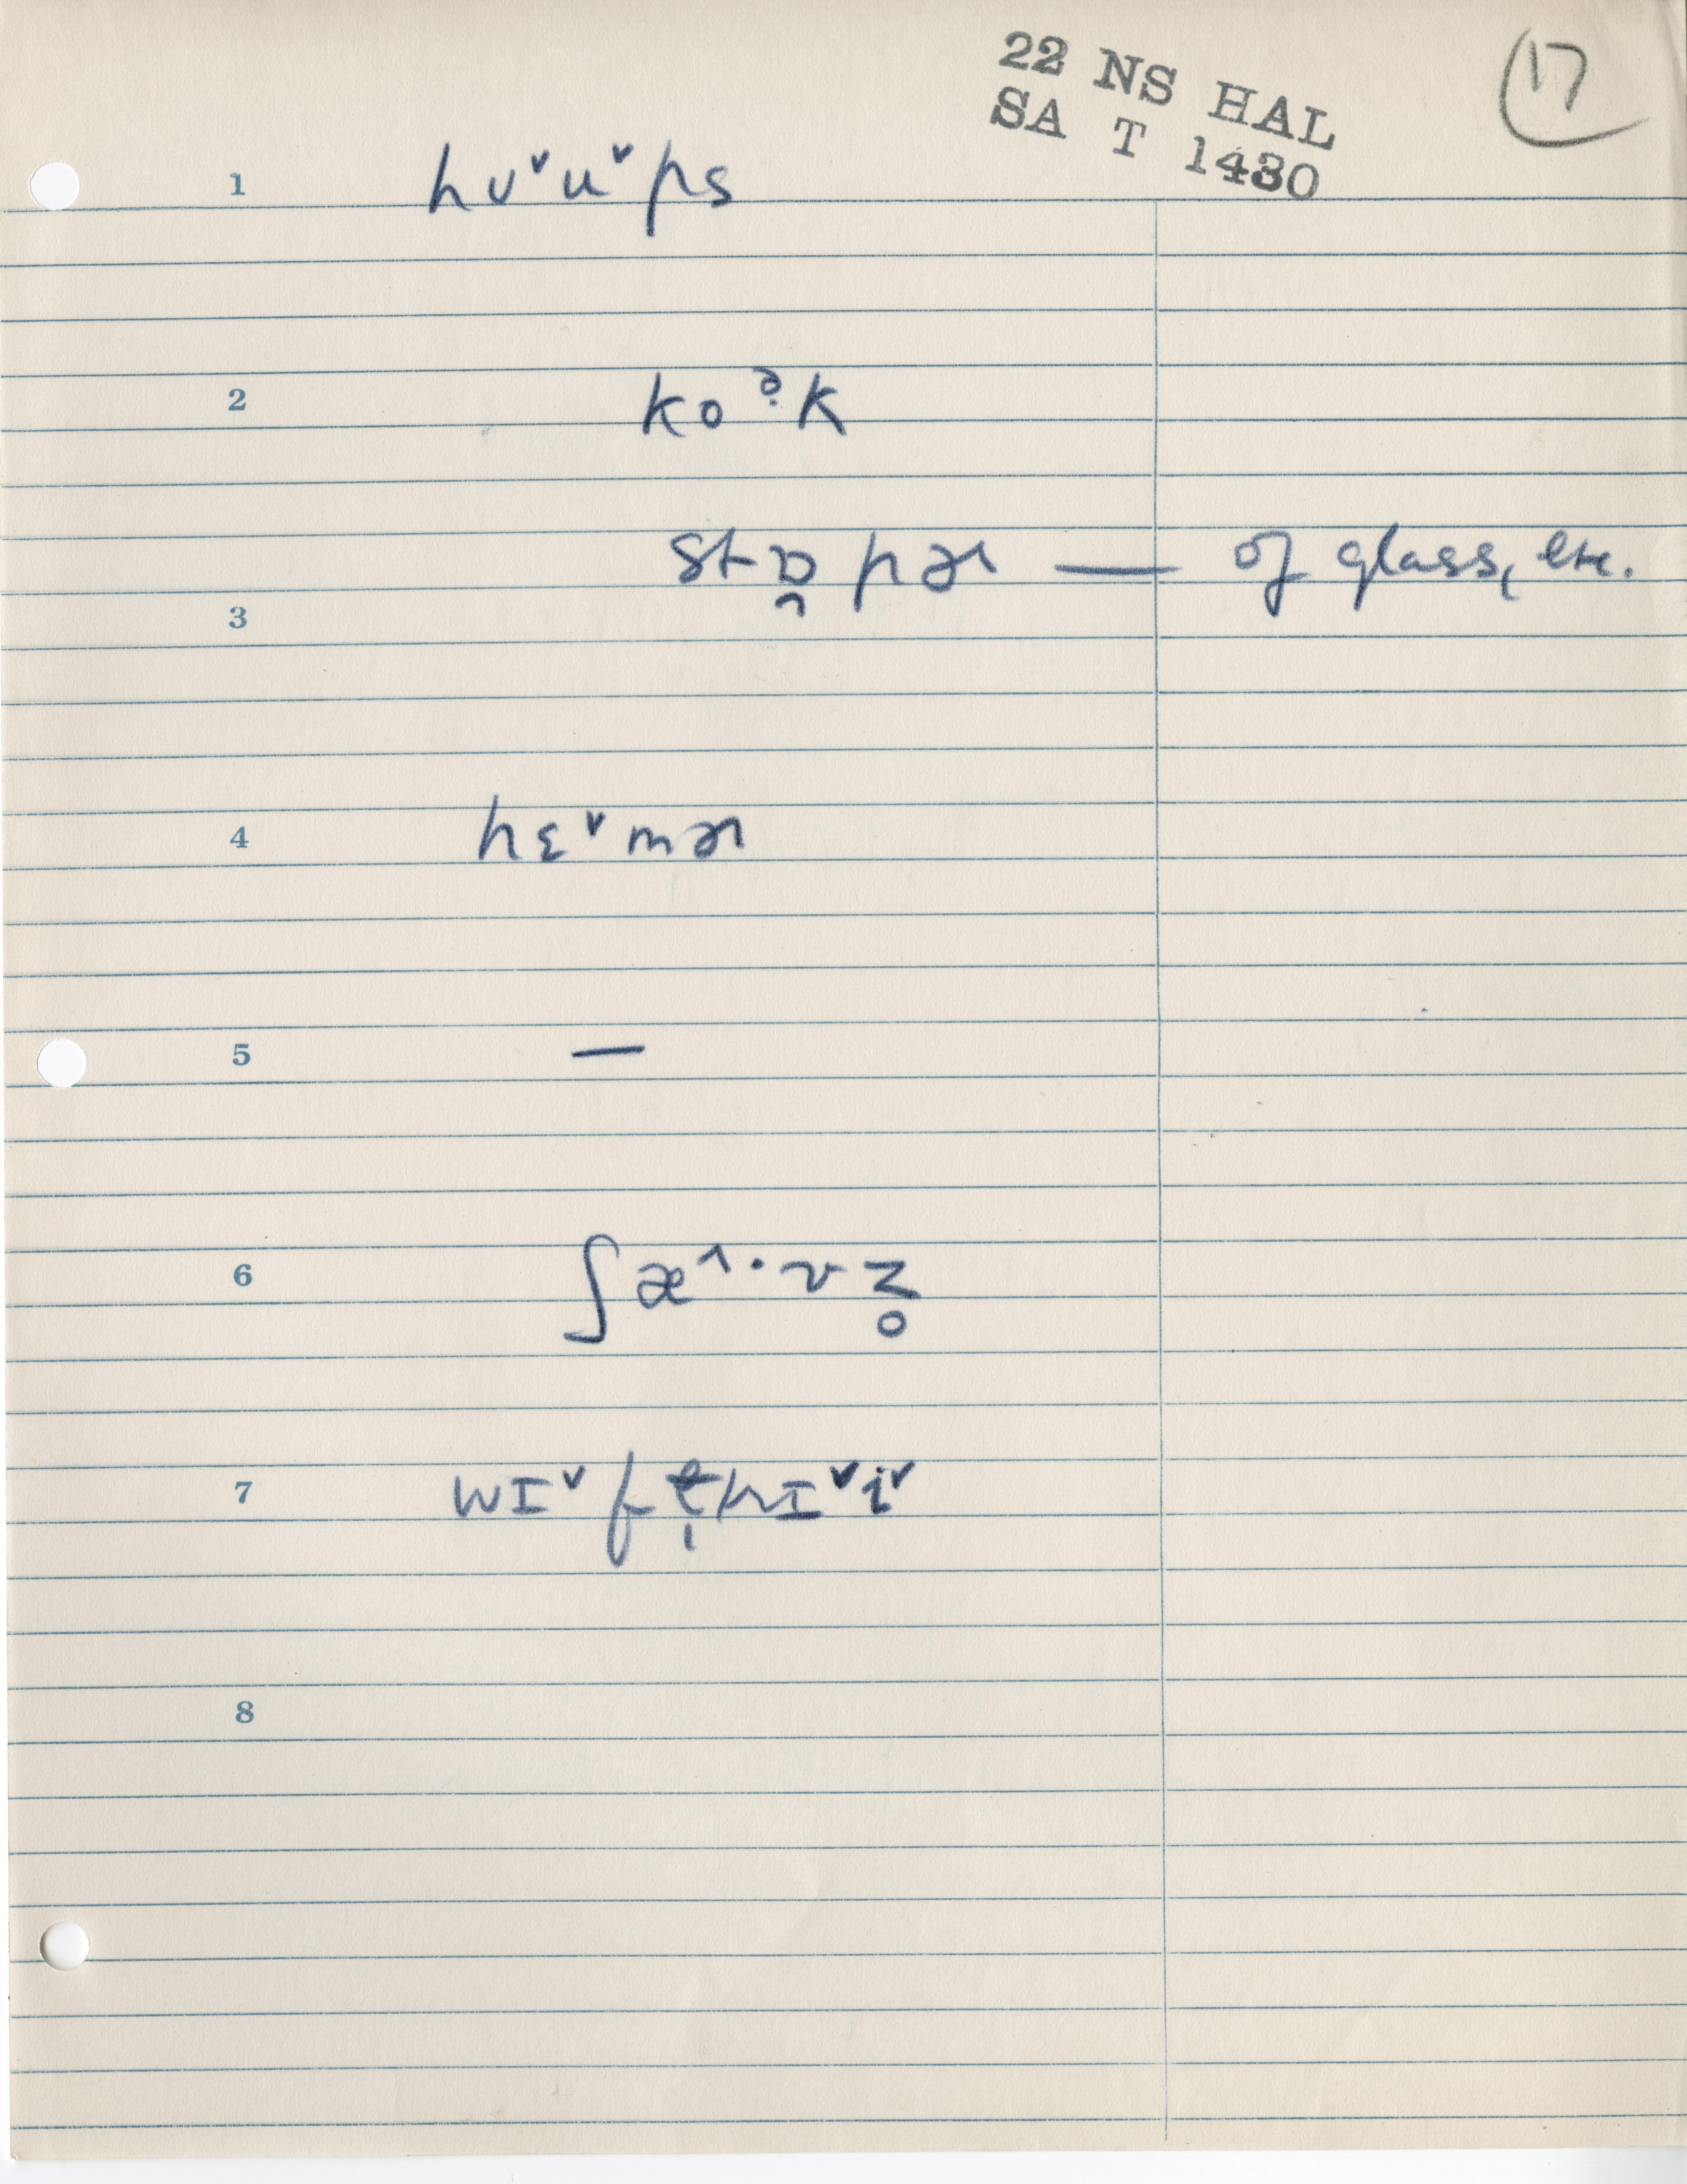 22 NS HAL
SA T 1430
17
1 hʊˇuˇps
2 koə̣k
stɒ̭pɚ — of glass, etc.
3
4 hɛˇmɚ
5 —
6 ʃæ^·vz̥
7 wɪˇftḷtrɪˇiˇ
8